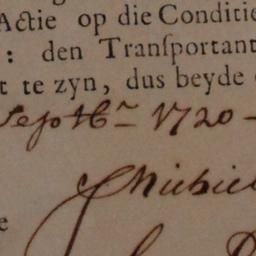 Actie op die Conditie
: den Tranſportant
t te zyn, dus beyde
Septbr 1720 -
Michiel
e